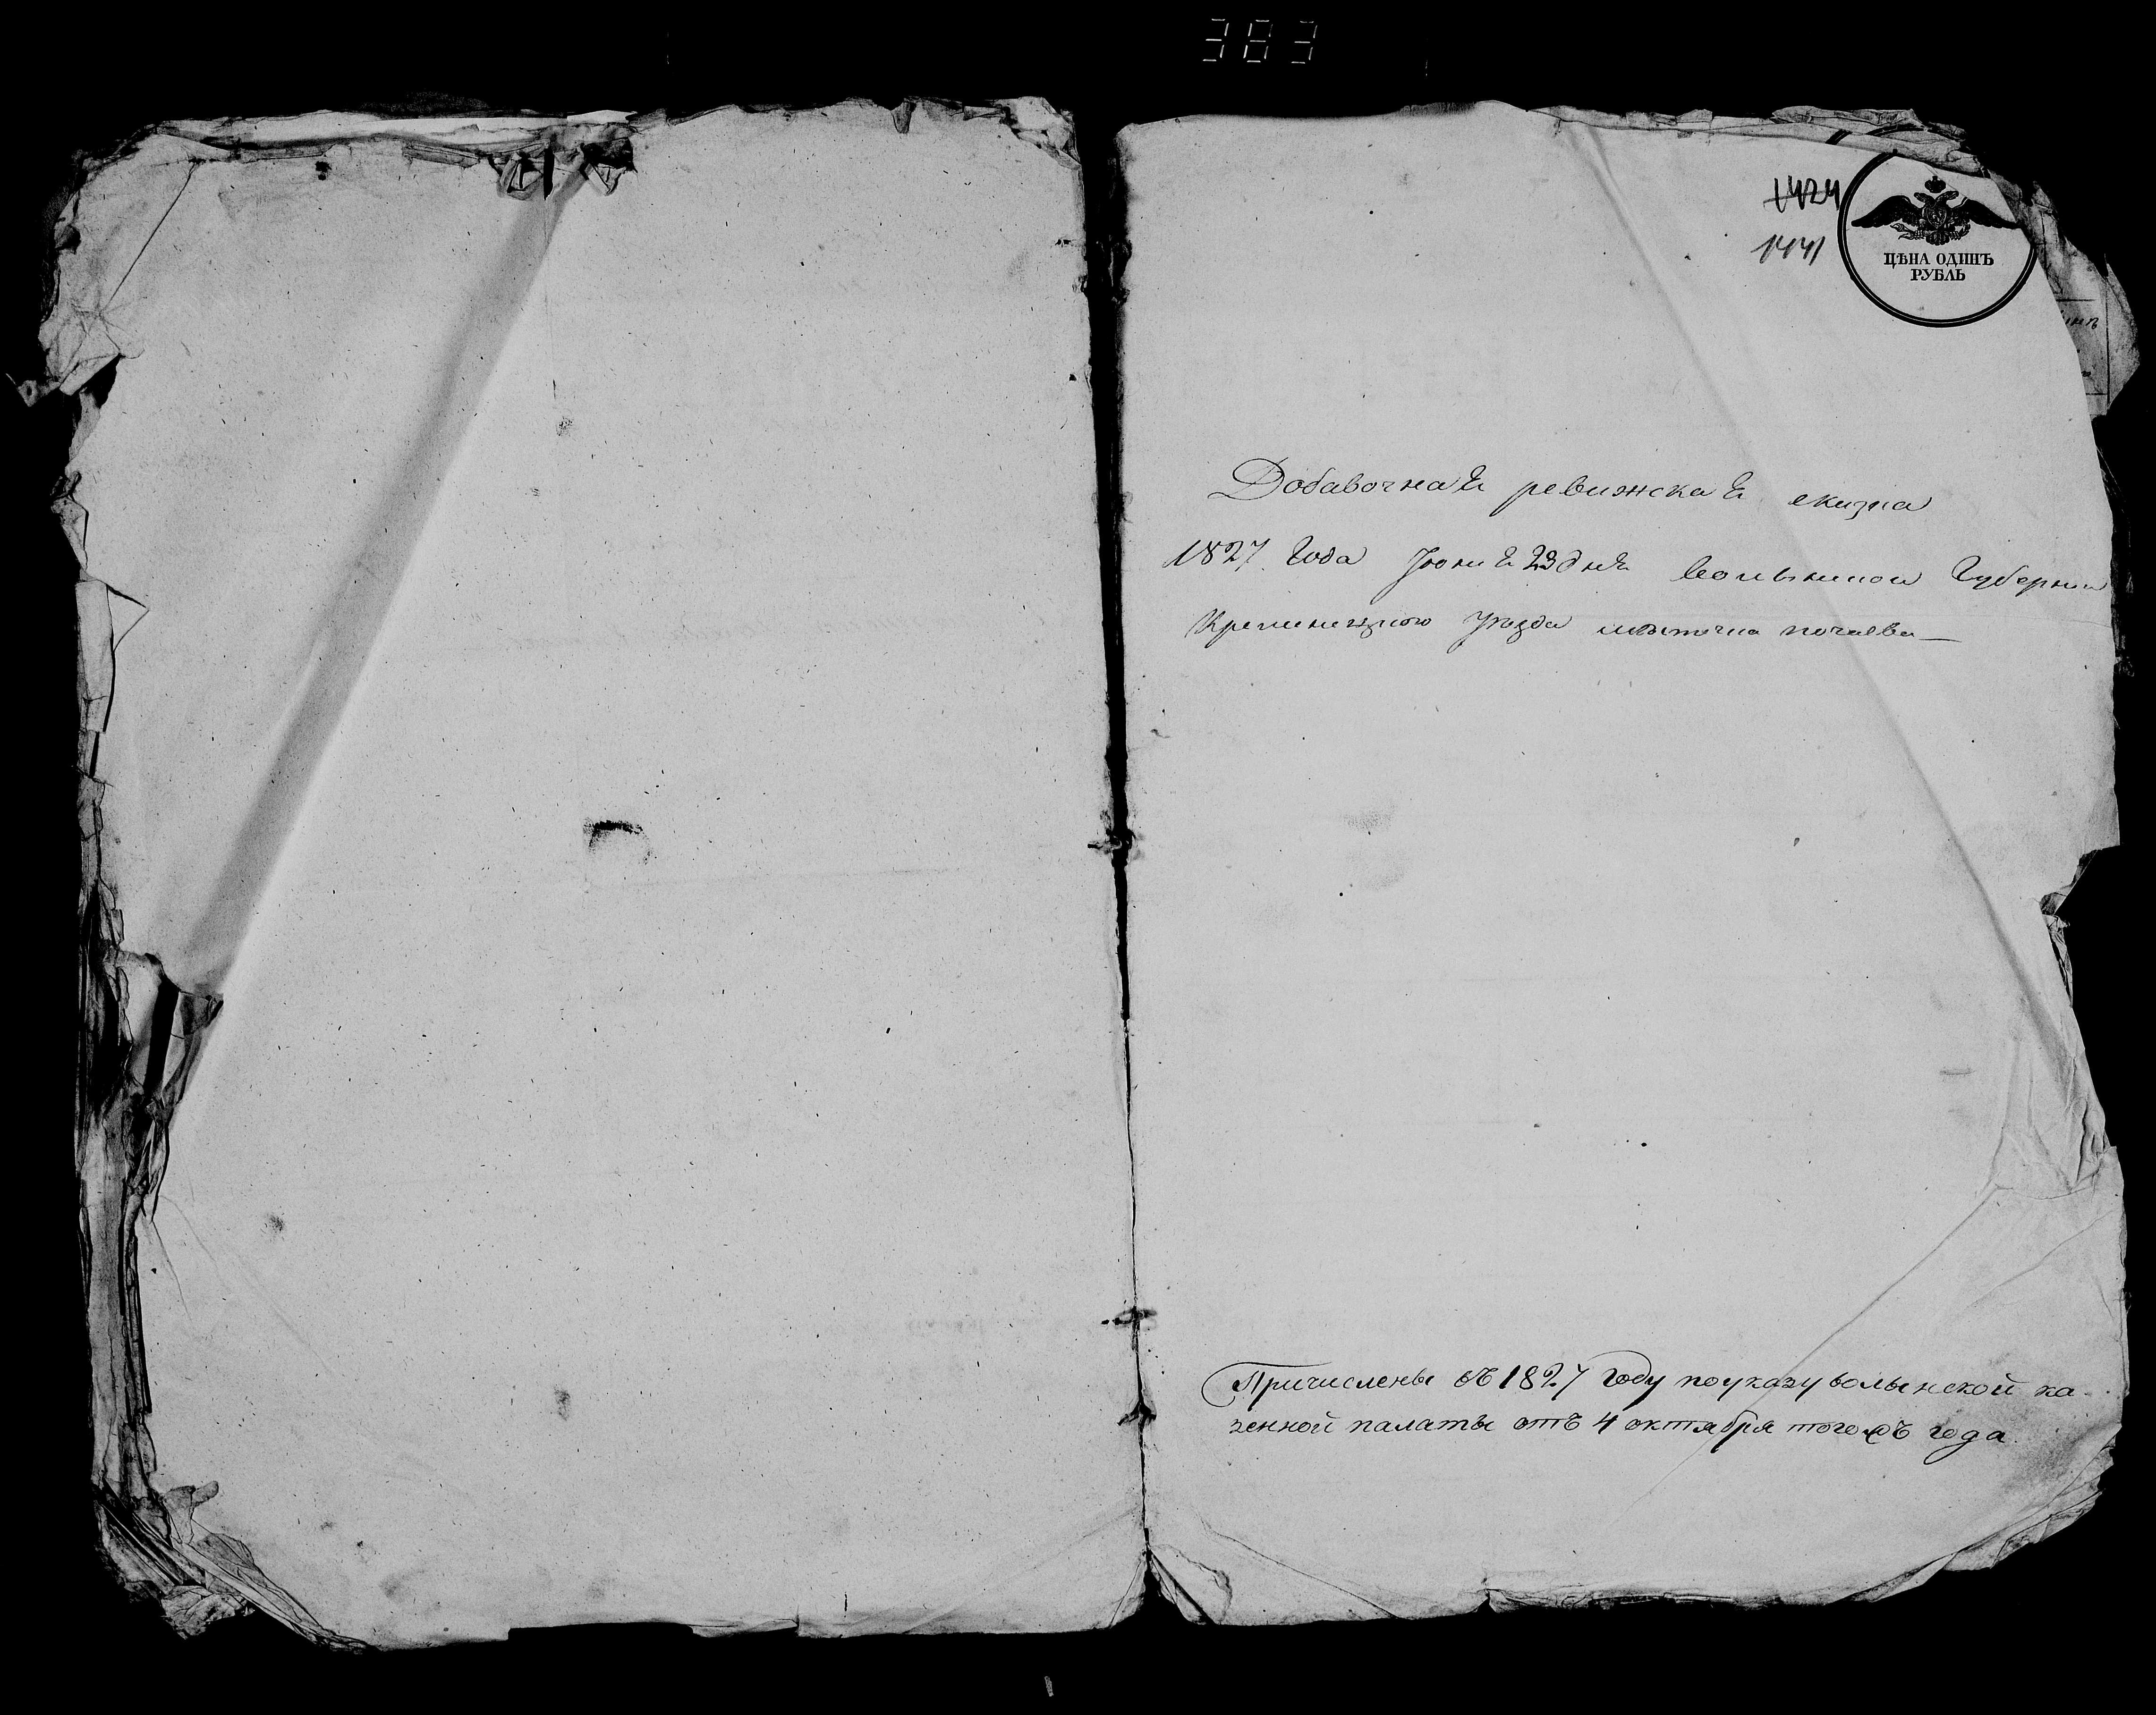 383
1424
1441
ЦѢНА ОДИНЪ
РУБЛЬ
Добавочная ревижская скизка
1827 Года Июня 23 дня Волынской Губернии
Кременецкого Уезда местечка почаева
Причислены въ 1827 году по указу волынской ка-
зенной палаты отъ 4 октября того жъ года